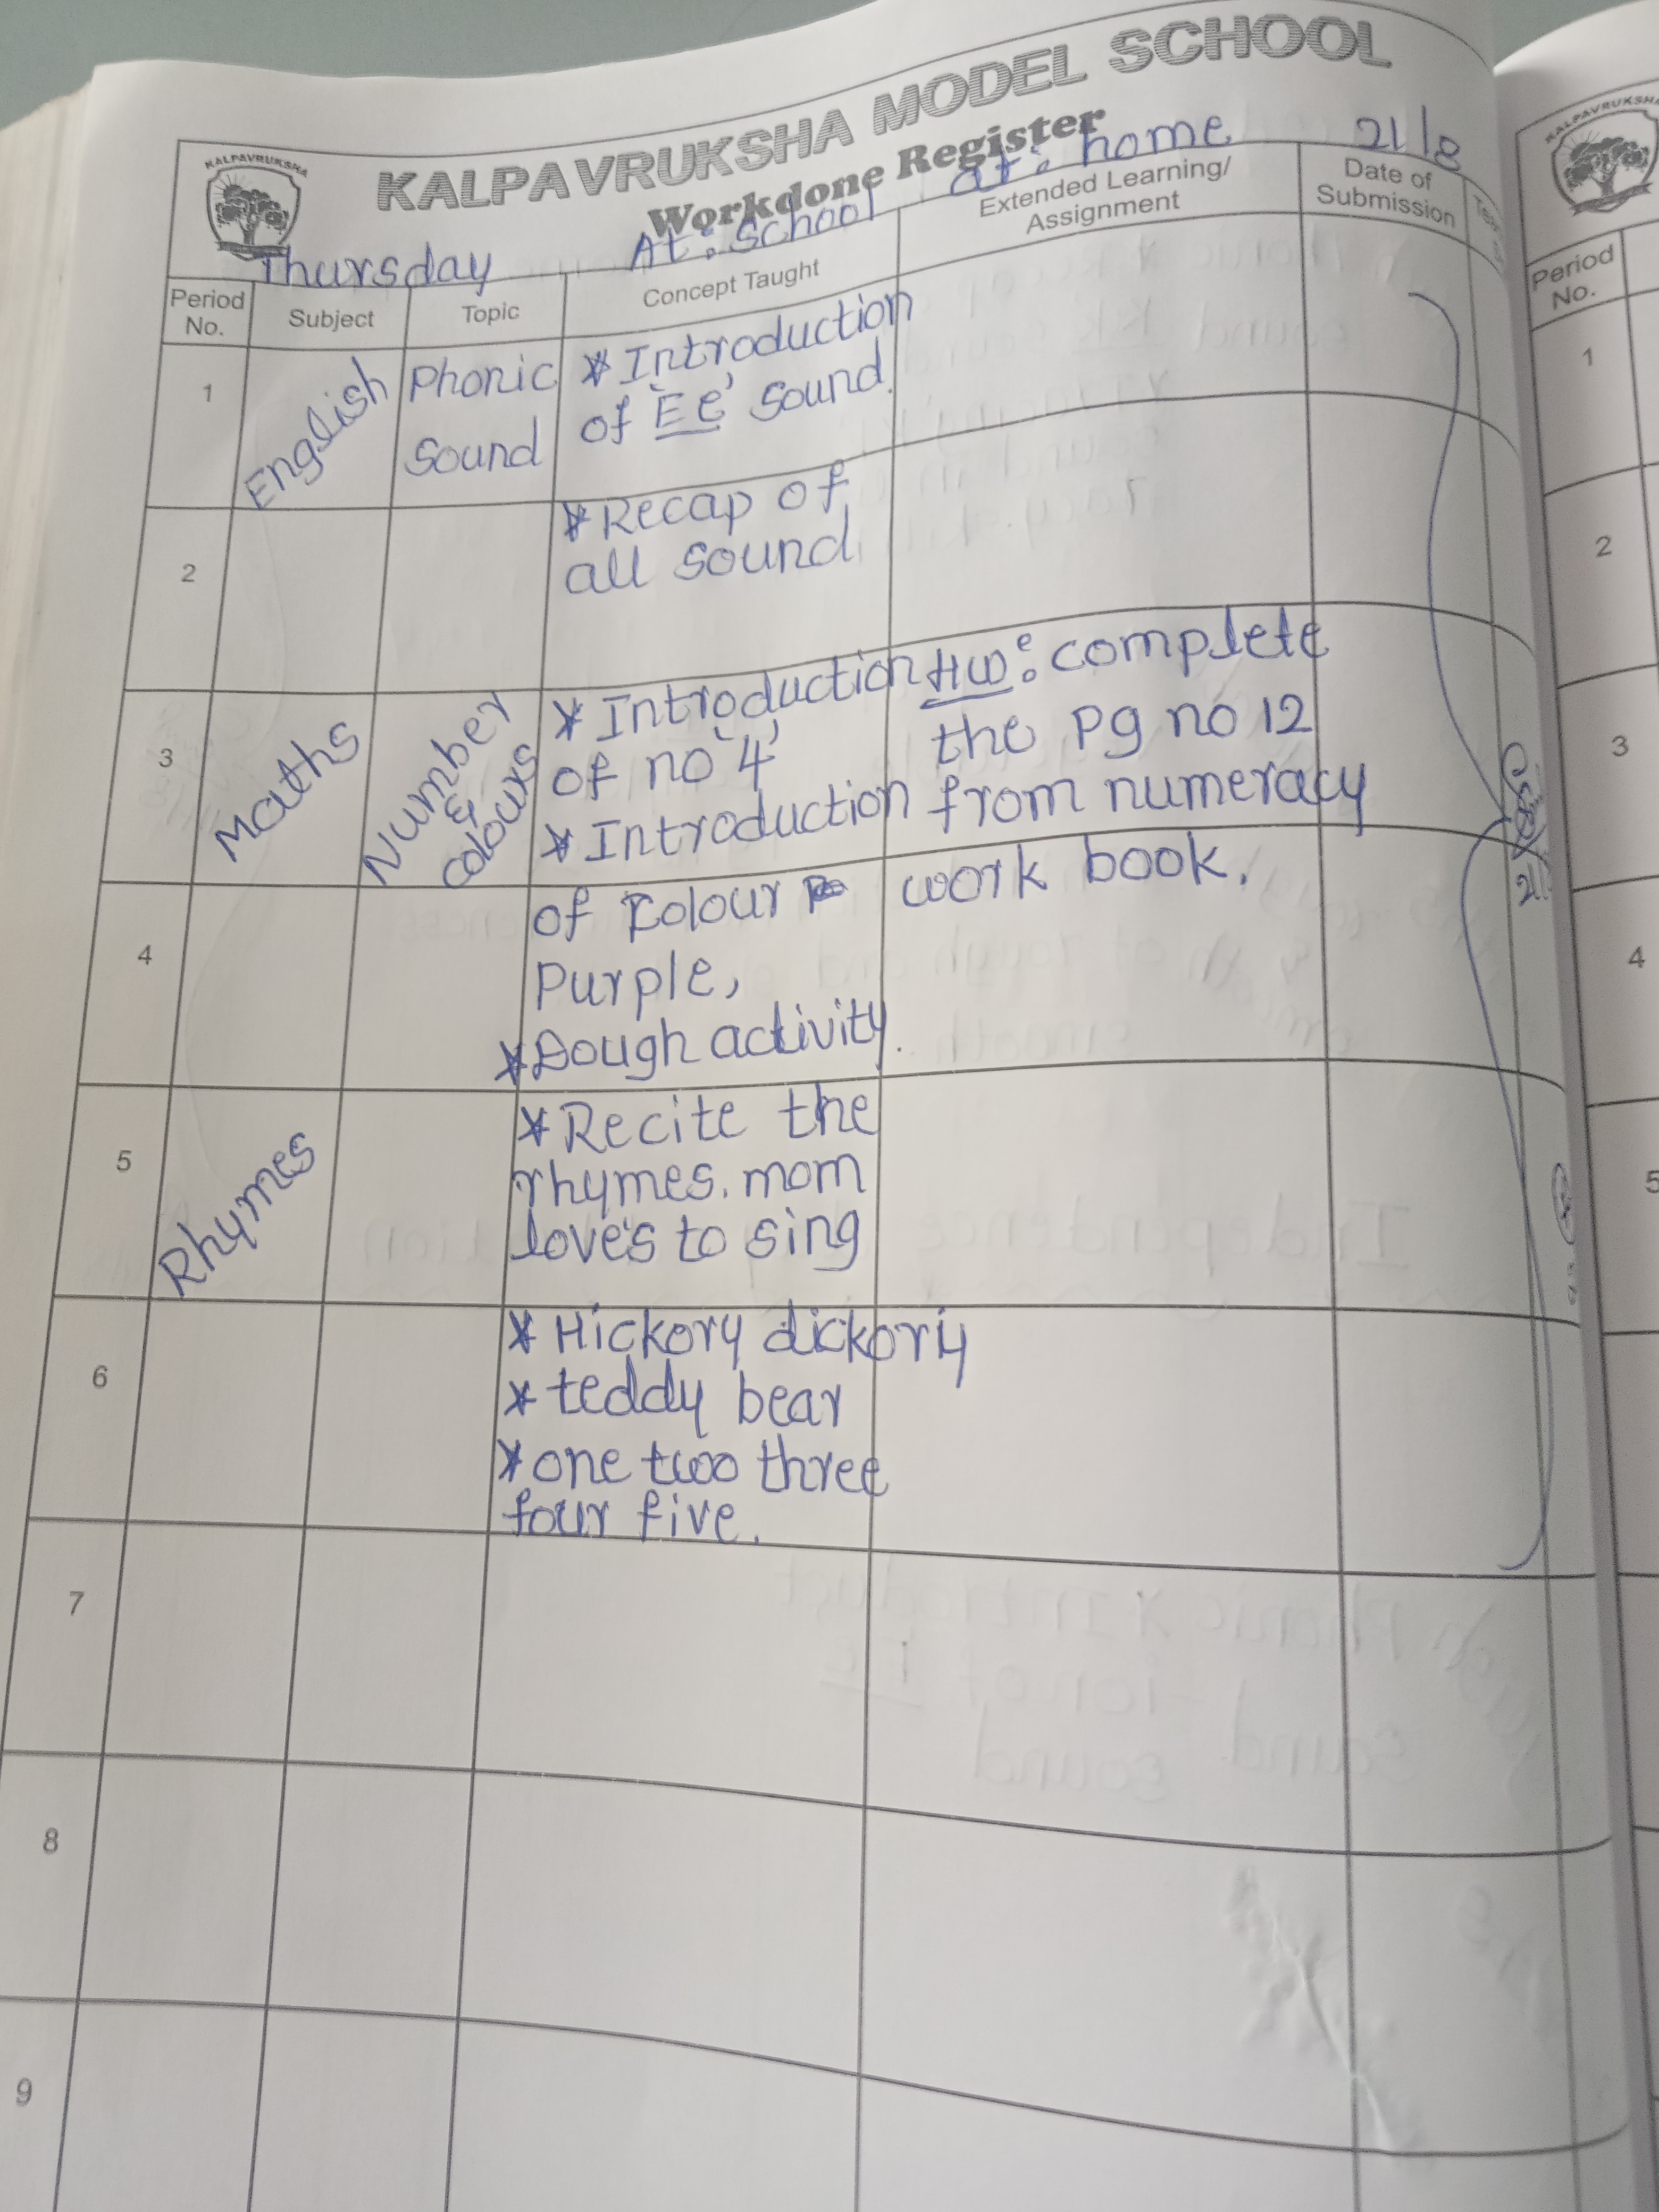 KALPAVRUKSHA MODEL SCHOOL
Workdone Register
KALPAVRUKSHA
Thursday
At: School
at: home
21/8
Period No.
Subject
Topic
Concept Taught
Extended Learning/ Assignment
Date of Submission
1
English
Phonic
Sound
* Introduction
of 'Ee' sound.
2
* Recap of
all sound
3
Maths
Number
&
colours
* Introduction
of no '4'
* Introduction
HW: complete
the pg no 12
from numeracy
work book.
4
of colour
Purple,
* Dough activity.
5
Rhymes
* Recite the
rhymes. mom
love's to sing
6
* Hickory dickory
* teddy bear
* one two three
four five.
7
8
9
KALPAVRUKSHA
Period
No.
1
2
3
4
5